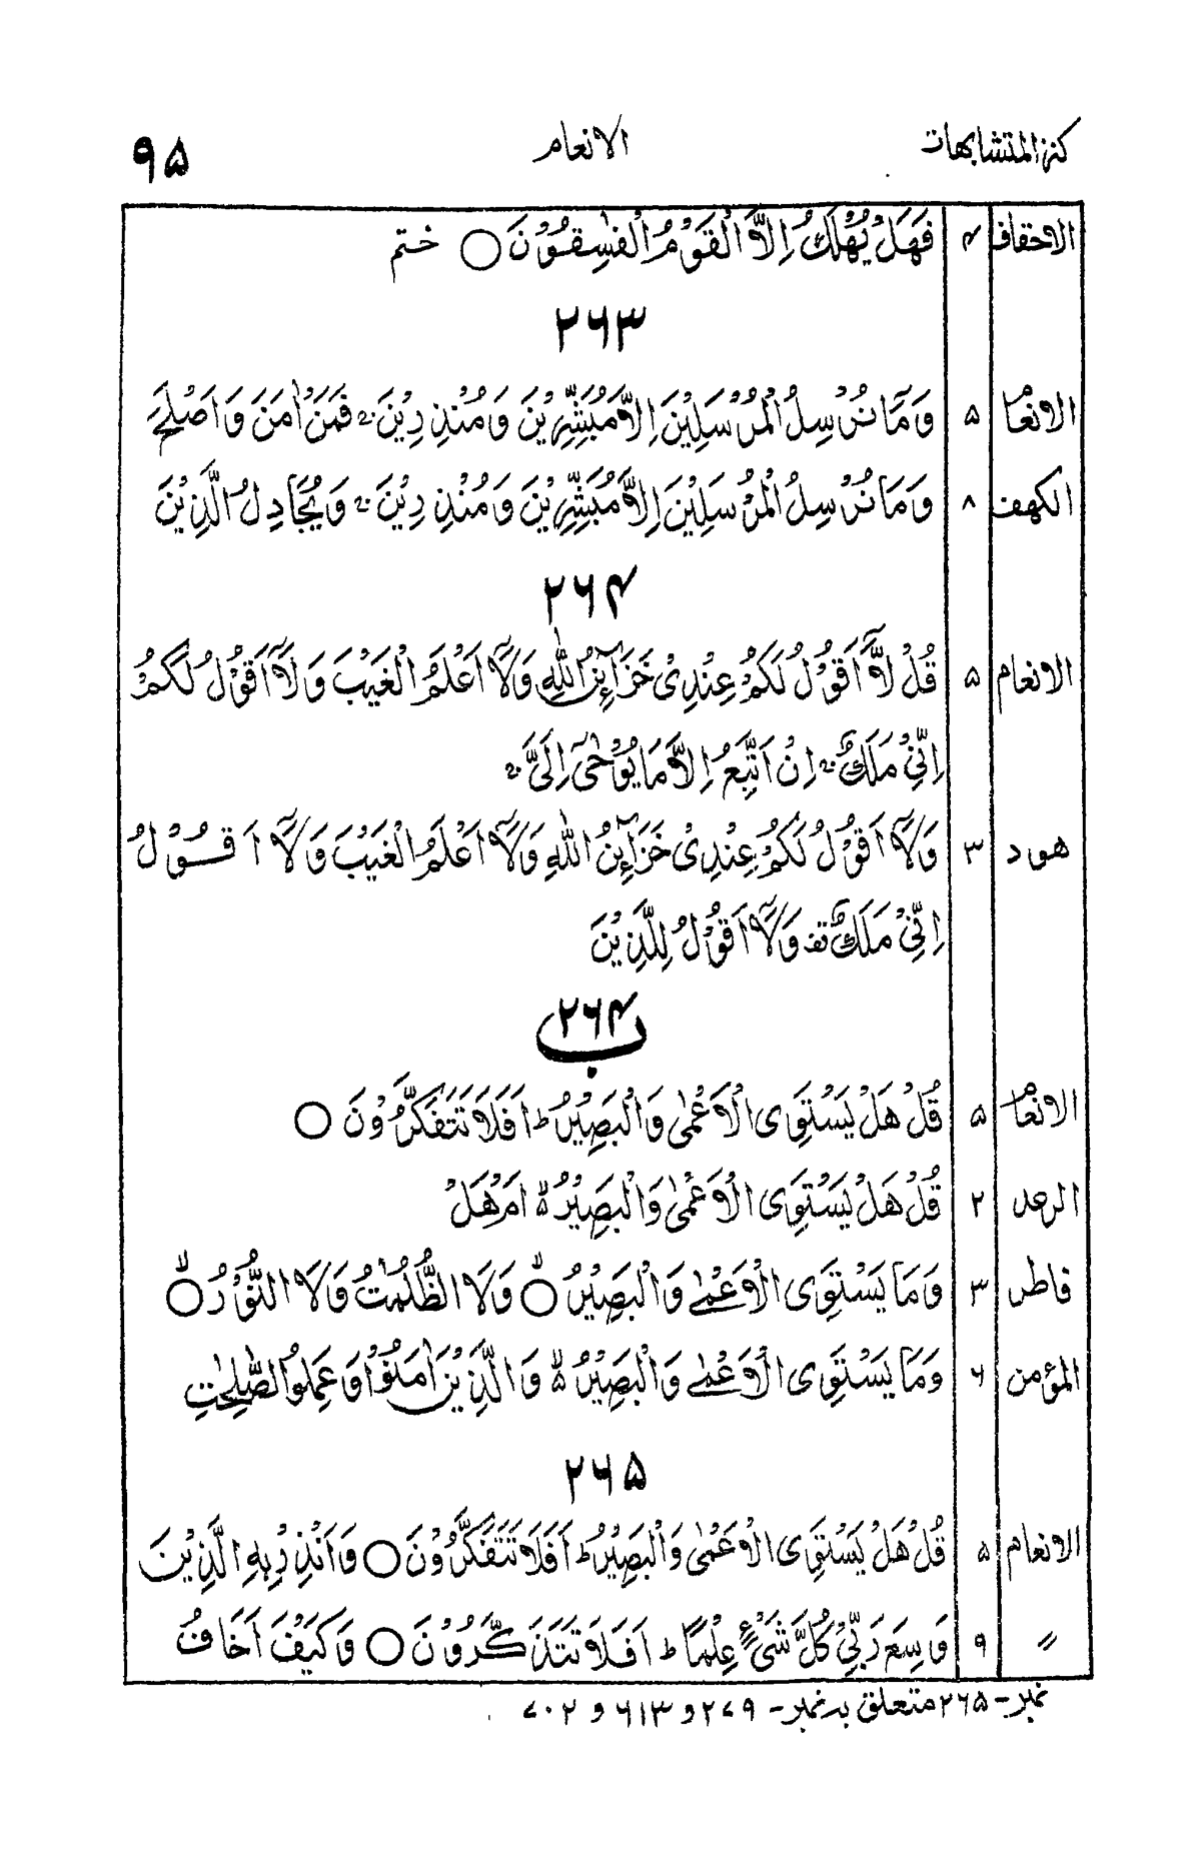 کنز المتشابهات الانعام ۹۵
الاحقاف ۴ فَهَلْ يُهْلَكُ اِلَّا الْقَوْمُ الْفٰسِقُوْنَ ○ ختم
۲۶۳
الانعا ۵ وَمَا نُرْسِلُ الْمُرْسَلِيْنَ اِلَّا مُبَشِّرِيْنَ وَمُنْذِرِيْنَ ۚ فَمَنْ اٰمَنَ وَاَصْلَحَ
الكهف ۸ وَمَا نُرْسِلُ الْمُرْسَلِيْنَ اِلَّا مُبَشِّرِيْنَ وَمُنْذِرِيْنَ ۚ وَيُجَادِلُ الَّذِيْنَ
۲۶۴
الانعام ۵ قُلْ لَّآ اَقُوْلُ لَكُمْ عِنْدِيْ خَزَآئِنُ اللّٰهِ وَلَآ اَعْلَمُ الْغَيْبَ وَلَآ اَقُوْلُ لَكُمْ
اِنِّيْ مَلَكٌ ۚ اِنْ اَتَّبِعُ اِلَّا مَا يُوْحٰٓى اِلَيَّ ۚ
هود ۳ وَلَآ اَقُوْلُ لَكُمْ عِنْدِيْ خَزَآئِنُ اللّٰهِ وَلَآ اَعْلَمُ الْغَيْبَ وَلَآ اَقُوْلُ
اِنِّيْ مَلَكٌ وَّلَآ اَقُوْلُ لِلَّذِيْنَ
۲۶۴ ب
الانعا ۵ قُلْ هَلْ يَسْتَوِى الْاَعْمٰى وَالْبَصِيْرُ ؕ اَفَلَا تَتَفَكَّرُوْنَ ○
الرعد ۲ قُلْ هَلْ يَسْتَوِى الْاَعْمٰى وَالْبَصِيْرُ ۙ اَمْ هَلْ
فاطر ۳ وَمَا يَسْتَوِى الْاَعْمٰى وَالْبَصِيْرُ ○ۙ وَلَا الظُّلُمٰتُ وَلَا النُّوْرُ ○ۙ
المؤمن ۶ وَمَا يَسْتَوِى الْاَعْمٰى وَالْبَصِيْرُ ۙ وَالَّذِيْنَ اٰمَنُوْا وَعَمِلُوا الصّٰلِحٰتِ
۲۶۵
الانعام ۵ قُلْ هَلْ يَسْتَوِى الْاَعْمٰى وَالْبَصِيْرُ ؕ اَفَلَا تَتَفَكَّرُوْنَ ○ وَاَنْذِرْ بِهِ الَّذِيْنَ
〃 ۹ وَسِعَ رَبِّيْ كُلَّ شَيْءٍ عِلْمًا ؕ اَفَلَا تَتَذَكَّرُوْنَ ○ وَكَيْفَ اَخَافُ
نمبر- ۲۶۵ متعلق بہ نمبر- ۲۷۹ و ۶۱۳ و ۷۰۲